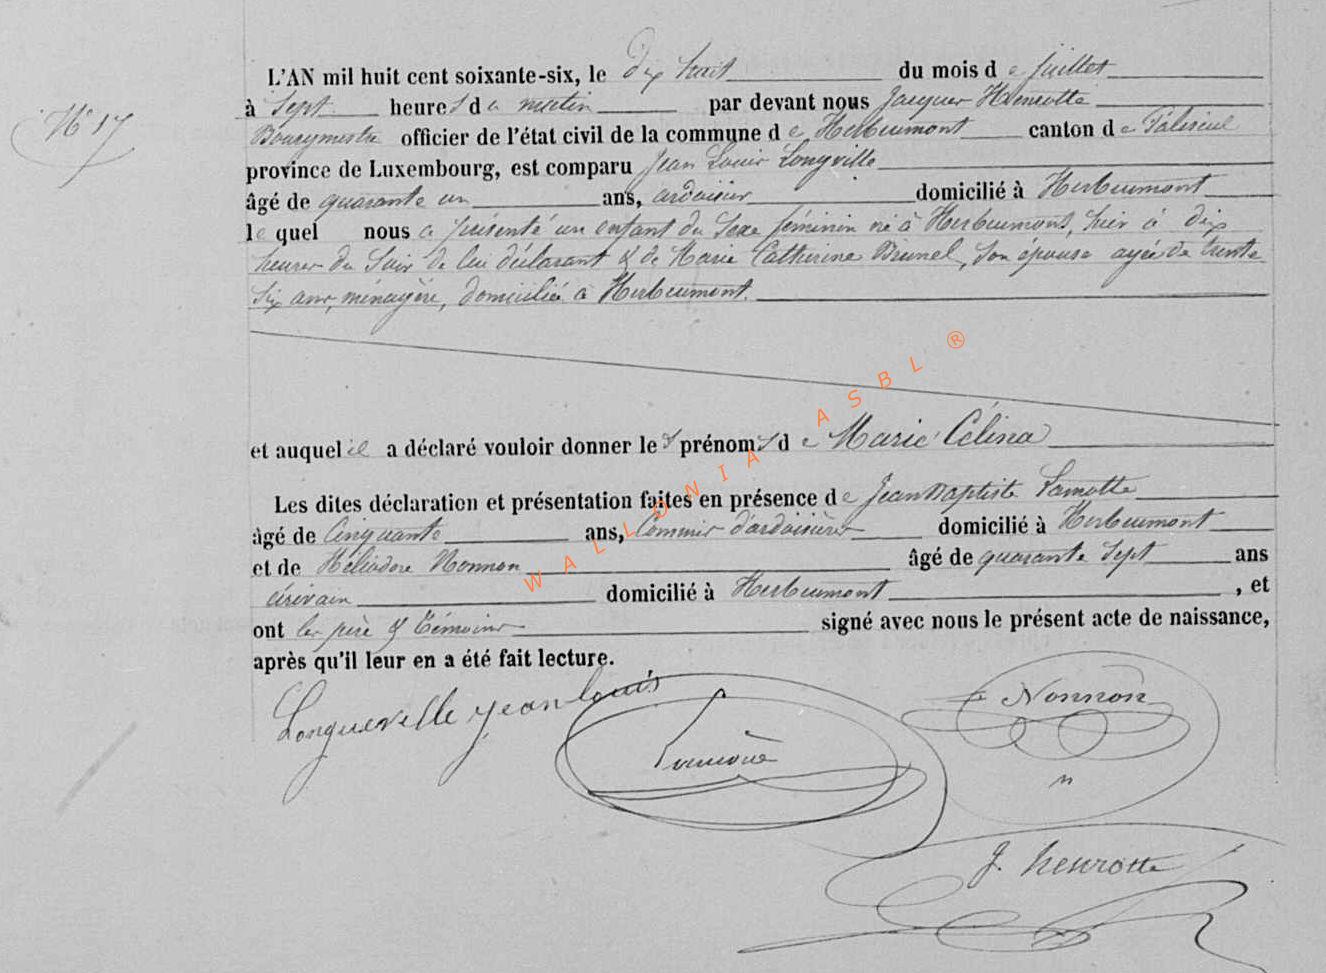 N° 17
L'AN mil huit cent soixante-six, le dix huit du mois de juillet
à Sept heures du matin par devant nous Jacques Henrotte
Bourgmestre officier de l'état civil de la commune de Herbeumont canton de Paliseul
province de Luxembourg, est comparu Jean Louis Longville
âgé de quarante un ans, ardoisier domicilié à Herbeumont
le quel nous a présenté un enfant du Sexe féminin né à Herbeumont, hier à dix
heures du Soir de lui déclarant & de Marie Catherine Brunel, Son épouse agée de trente
Six ans, ménagère, domiciliée à Herbeumont.
et auquel il a déclaré vouloir donner les prénoms de Marie Célina
Les dites déclaration et présentation faites en présence de Jean Baptiste Lamotte
âgé de Cinquante ans, Commis d'ardoisières domicilié à Herbeumont
et de Héliodore Nonnon âgé de quarante Sept ans
écrivain domicilié à Herbeumont , et
ont les père & Témoins signé avec nous le présent acte de naissance,
après qu'il leur en a été fait lecture.
Longueville jean louis
Nonnon
J. henrotte
WALLONIA ASBL ®